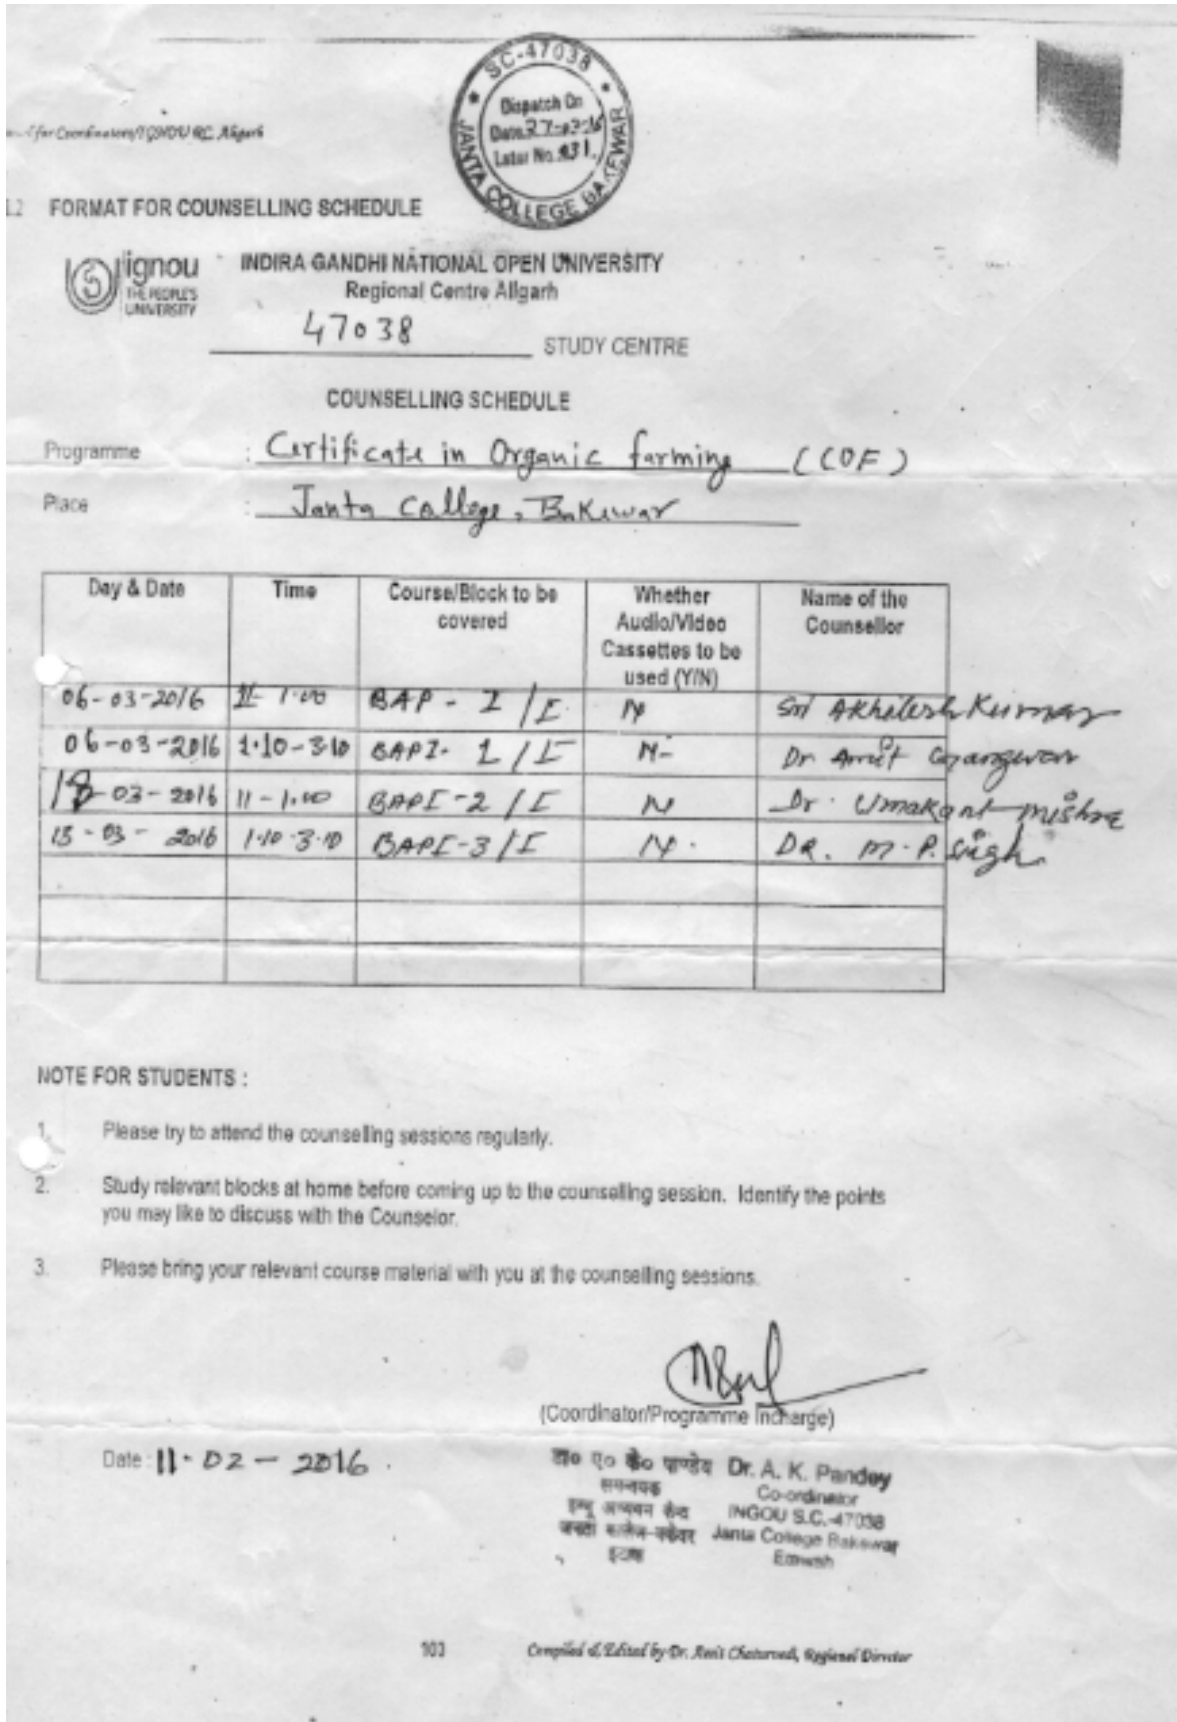 SC-47038
Dispatch On
Date 27-02-16
Latur No. 931.
JANTA COLLEGE BAKEWAR
for Coordinators/IGNOU RC, Aligarh
1.2 FORMAT FOR COUNSELLING SCHEDULE
ignou
THE PEOPLE'S
UNIVERSITY
INDIRA GANDHI NATIONAL OPEN UNIVERSITY
Regional Centre Aligarh
47038 STUDY CENTRE
COUNSELLING SCHEDULE
Programme : Certificate in Organic farming (COF)
Place : Janta College, Bakewar
Day & Date Time Course/Block to be covered Whether Audio/Video Cassettes to be used (Y/N) Name of the Counsellor
06-03-2016 11-1.00 BAP - I /I N Sri Akhilesh Kumar
06-03-2016 1.10-3.10 BAPI- 1/I N- Dr Amit Gangwar
13-03-2016 11-1.00 BAPI-2/I N Dr. Umakant mishra
13-03-2016 1.10-3.10 BAPI-3/I N. DR. M.P. Singh
NOTE FOR STUDENTS :
1. Please try to attend the counselling sessions regularly.
2. Study relevant blocks at home before coming up to the counselling session. Identify the points
you may like to discuss with the Counselor.
3. Please bring your relevant course material with you at the counselling sessions.
(Coordinator/Programme Incharge)
Date : 11-02-2016.
डा० ए० के० पाण्डेय Dr. A. K. Pandey
समन्वयक Co-ordinator
इग्नू अध्ययन केन्द्र INGOU S.C.-47038
जनता कालेज-बकेवर Janta College Bakewar
इटावा Etawah
103 Compiled & Edited by Dr. Amit Chaturvedi, Regional Director